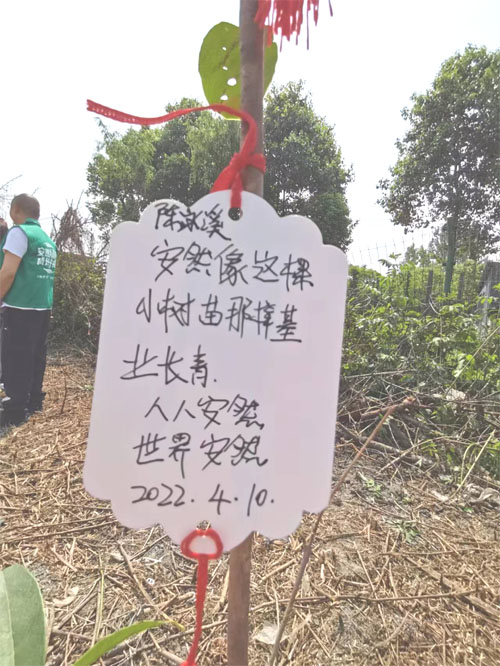 陈冰溪
安然像这棵
小树苗那样基
业长青.
人人安然
世界安然
2022.4.10.